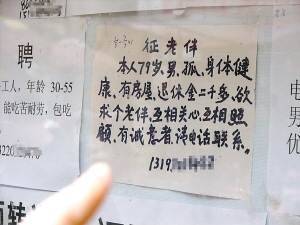 聘
工人，年龄 30-55
能吃苦耐劳，包吃
3220
征老伴
本人79岁、男、孤、身体健
康、有房屋、退休金二千多、欲
求个老伴、互相关心、互相照
顾、有诚意者、请电话联系。
1319